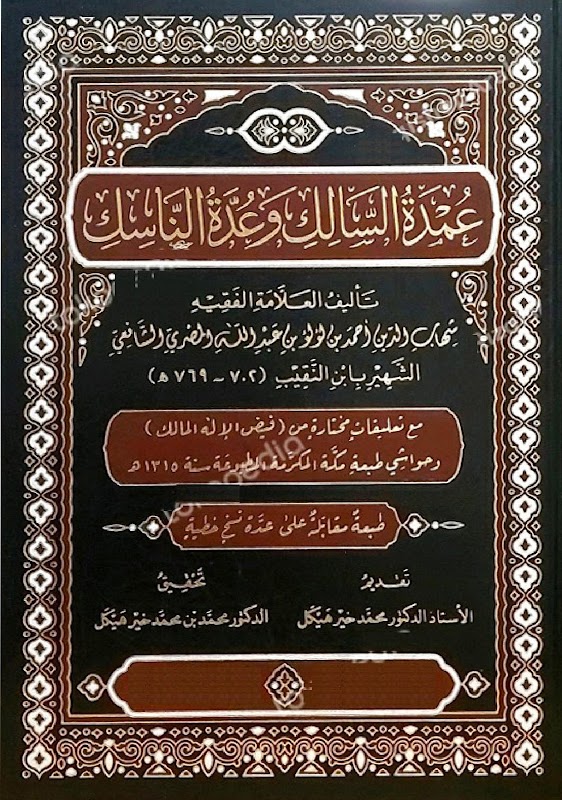 عُمْدَةُ السَّالِكِ وَعُدَّةُ النَّاسِكِ
تَأليفُ العَلَّامَةِ الفَقِيهِ
شهاب الدين أحمد بن لؤلؤ بن عبد الله المصري الشافعي
الشهير بابن النقيب (٧٠٢ - ٧٦٩ هـ)
مع تعليقات مختارة من (فيض الإله المالك)
وحواشي طبعة مكة المكرمة المطبوعة سنة ١٣١٥ هـ
طبعة مقابلة على عدة نسخ خطية
تقديم
الأستاذ الدكتور محمد خير هيكل
تحقيق
الدكتور محمد بن محمد خير هيكل